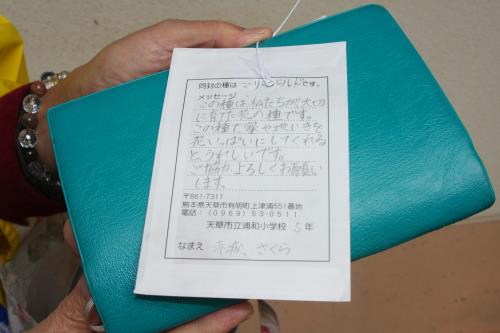 同封の種は マリーゴールド です。
メッセージ
この種は私たちが大切
に育てた花の種です。
この種で、家や地いきを
花いっぱいにしてくれる
と、うれしいです。
ご協力、よろしくお願い
します。
〒861-7311
熊本県天草市有明町上津浦551番地
電話:(0969)53-0511
天草市立浦和小学校 5年
なまえ 赤城 さくら